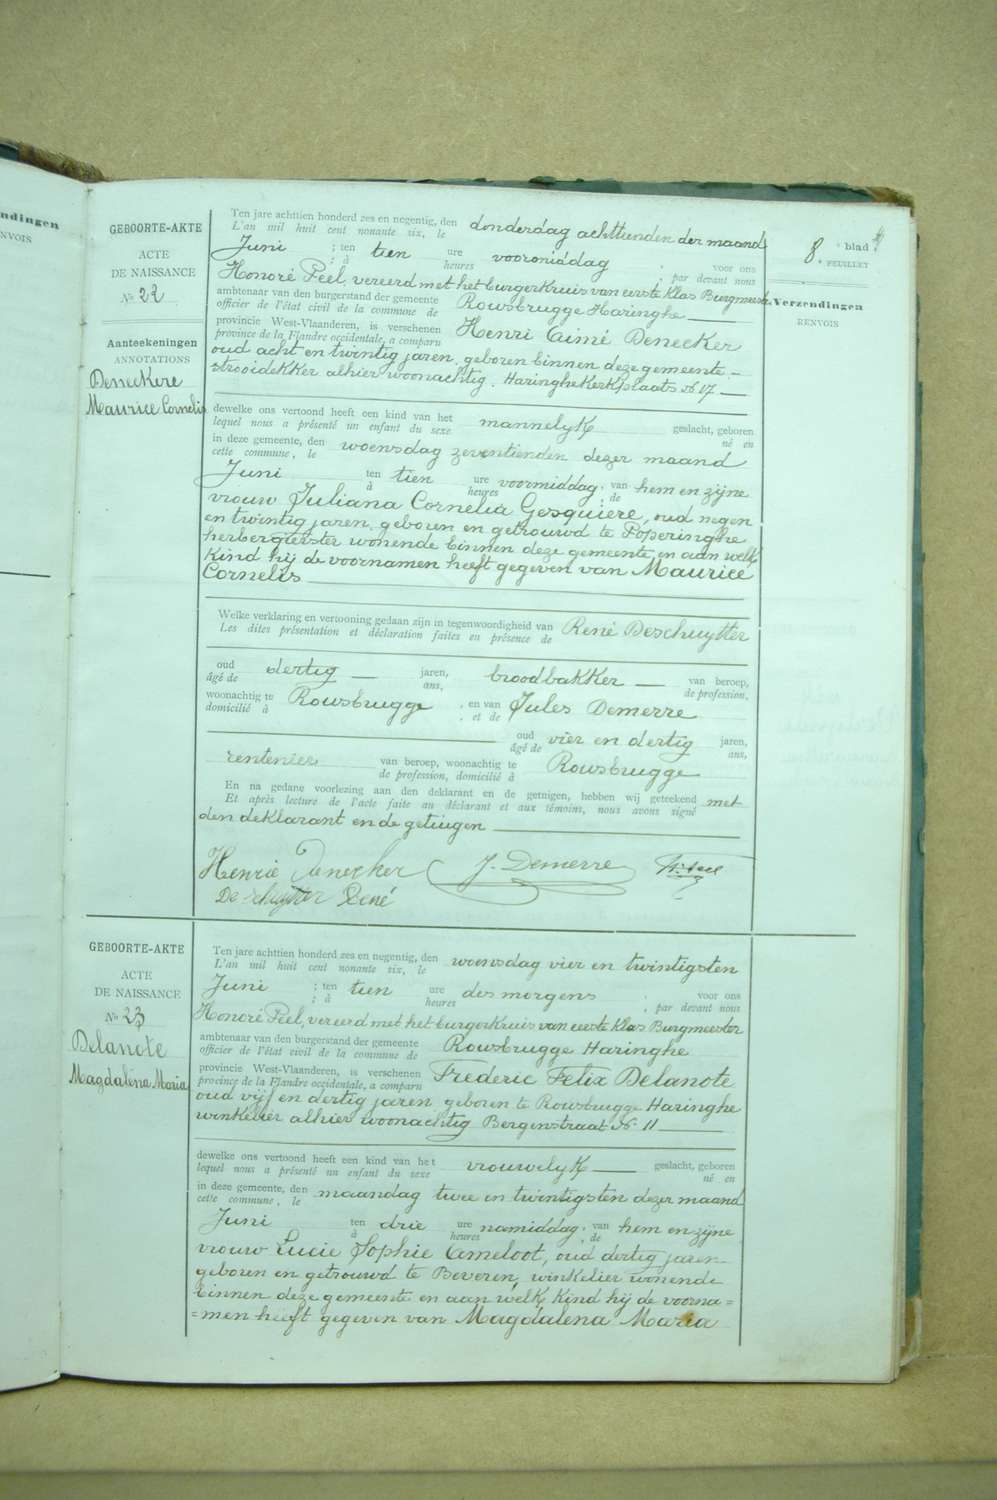 ndingen
NVOIS
8e blad
e FEUILLET
Verzendingen
RENVOIS
GEBOORTE-AKTE
ACTE
DE NAISSANCE
No 22
Aanteekeningen
ANNOTATIONS
Deneckere
Maurice Cornelis
Ten jare achttien honderd zes en negentig, den donderdag achttienden der maand
L'an mil huit cent nonante six, le
Juni ; ten tien ure voormiddag , voor ons
; à heures , par devant nous
Honoré Peel, vereerd met het burgerkruis van eerste klas Burgmeester
ambtenaar van den burgerstand der gemeente Rousbrugge Haringhe
officier de l'état civil de la commune de
provincie West-Vlaanderen, is verschenen Henri Aimé Denecker
province de la Flandre occidentale, a comparu
oud acht en twintig jaren, geboren binnen deze gemeente
strooidekker alhier woonachtig. Haringhe Kerkplaats No 17
dewelke ons vertoond heeft een kind van het mannelyk geslacht, geboren
lequel nous a présenté un enfant du sexe né en
in deze gemeente, den woensdag zeventienden dezer maand
cette commune, le
Juni ten tien ure voormiddag, van hem en zijne
à heures , de
vrouw Juliana Cornelia Gesquiere, oud negen
en twintig jaren, geboren en getrouwd te Poperinghe
herbergierster wonende binnen deze gemeente, en aan welk
kind hij de voornamen heeft gegeven van Maurice
Cornelis
Welke verklaring en vertooning gedaan zijn in tegenwoordigheid van René Deschuytter
Les dites présentation et déclaration faites en présence de
oud dertig jaren, broodbakker van beroep,
âgé de ans, de profession,
woonachtig te Rousbrugge , en van Jules Demerre
domicilié à , et de
oud vier en dertig jaren,
âgé de ans,
rentenier van beroep, woonachtig te Rousbrugge
de profession, domicilié à
En na gedane voorlezing aan den deklarant en de getuigen, hebben wij geteekend met
Et après lecture de l'acte faite au déclarant et aux témoins, nous avons signé
den deklarant en de getuigen
Henrie Denecker J. Demerre H. Peel
De schuytter René
GEBOORTE-AKTE
ACTE
DE NAISSANCE
No 23
Delanote
Magdalena Maria
Ten jare achttien honderd zes en negentig, den woensdag vier en twintigsten
L'an mil huit cent nonante six, le
Juni ; ten tien ure des morgens , voor ons
; à heures , par devant nous
Honoré Peel, vereerd met het burgerkruis van eerste klas Burgmeester
ambtenaar van den burgerstand der gemeente Rousbrugge Haringhe
officier de l'état civil de la commune de
provincie West-Vlaanderen, is verschenen Frederic Felix Delanote
province de la Flandre occidentale, a comparu
oud vijf en dertig jaren geboren te Rousbrugge Haringhe
winkelier alhier woonachtig Bergenstraat No 11
dewelke ons vertoond heeft een kind van het vrouwelyk geslacht, geboren
lequel nous a présenté un enfant du sexe né en
in deze gemeente, den maandag twee en twintigsten dezer maand
cette commune, le
Juni ten drie ure namiddag, van hem en zijne
à heures , de
vrouw Lucie Sophie Ameloot, oud dertig jaren
geboren en getrouwd te Beveren, winkelier wonende
binnen deze gemeente en aan welk kind hij de voorna=
=men heeft gegeven van Magdalena Maria